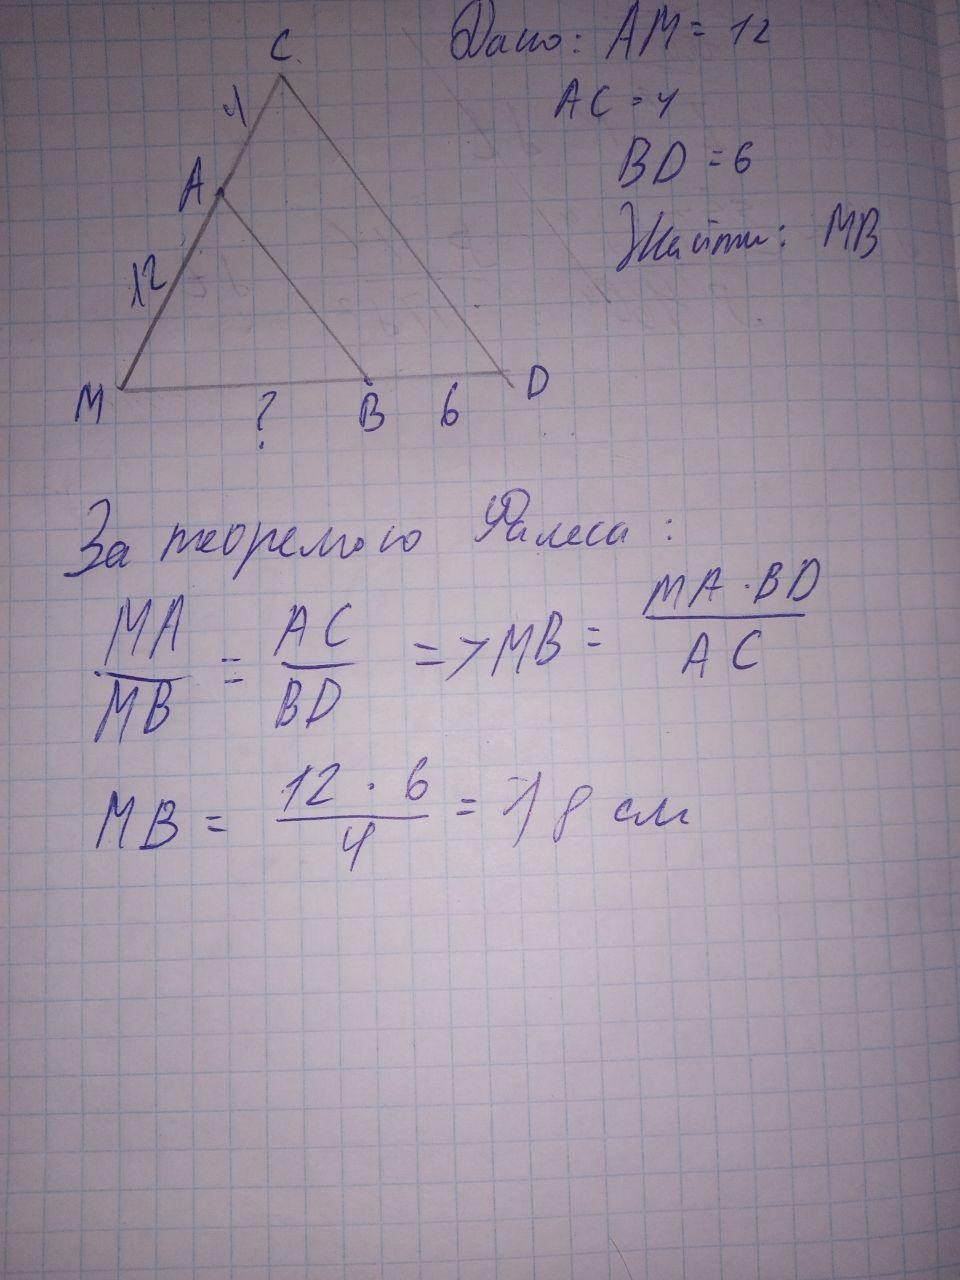 Дано: AM = 12
AC = 4
BD = 6
Знайти: MB
C
4
A
12
M
?
B
6
D
За теоремою Фалеса:
MA/MB = AC/BD => MB = MA · BD/AC
MB = 12 · 6/4 = 18 см